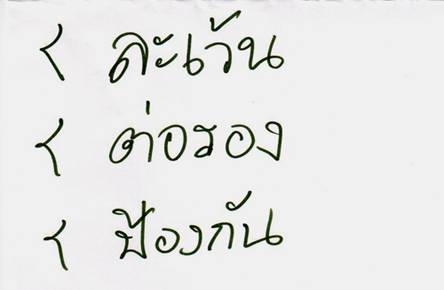 < ละเว้น
< ต่อรอง
< ป้องกัน